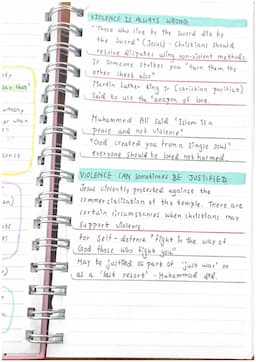 VIOLENCE IS ALWAYS WRONG:
"Those who live by the sword die by
the sword" (Jesus) - Christians should
resolve disputes using non-violent methods
If someone strikes you "turn them the
other cheek also"
Martin Luther King Jr (Christian pacifist)
said to use the "weapon of love.
Muhammed Ali said "Islam is a
peace and not violence"
"God created you from a single soul"
everyone should be loved not harmed.
VIOLENCE CAN sometimes BE JUSTIFIED
Jesus violently protested against the
commercialisation of the temple. There are
certain circumstances when christians may
support violence
For self-defense "fight in the way of
God those who fight you"
May be justified as part of 'just war' or
as a 'last resort' - Muhammad did.